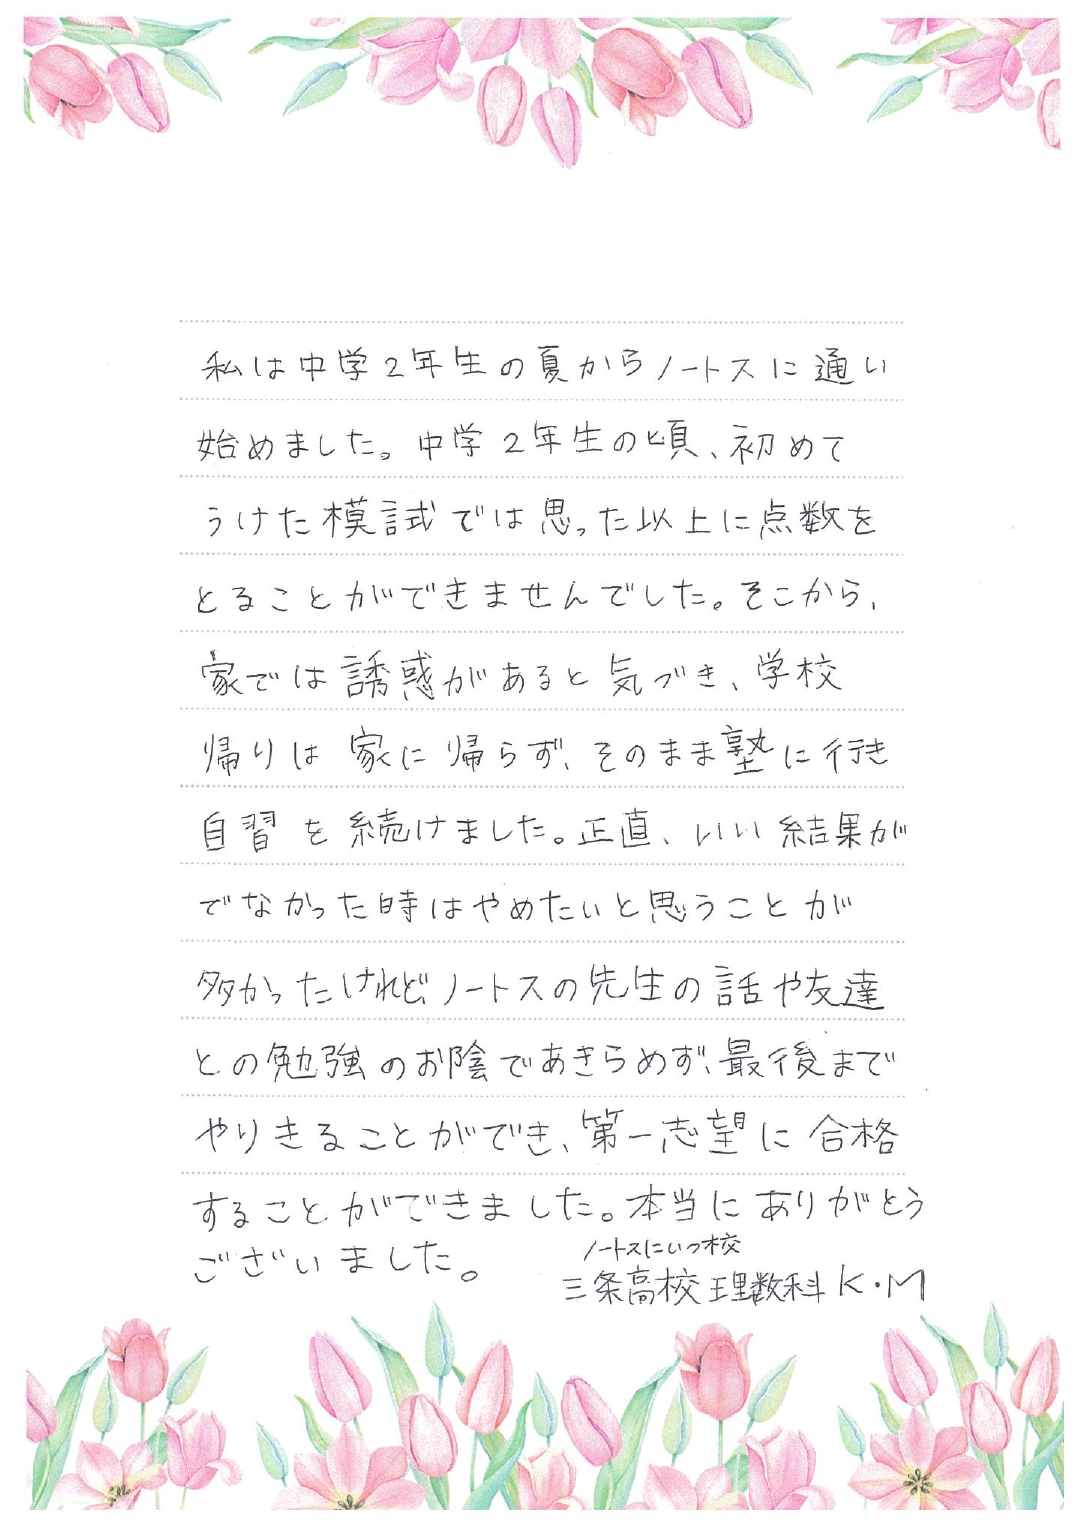 私は中学2年生の夏からノートスに通い
始めました。中学2年生の頃、初めて
うけた模試では思った以上に点数を
とることができませんでした。そこから、
家では誘惑があると気づき、学校
帰りは家に帰らず、そのまま塾に行き
自習を続けました。正直、いい結果が
でなかった時はやめたいと思うことが
多かったけれど、ノートスの先生の話や友達
との勉強のお陰であきらめず、最後まで
やりきることができ、第一志望に合格
することができました。本当にありがとう
ございました。
ノートスにいつ校
三条高校理数科 K・M